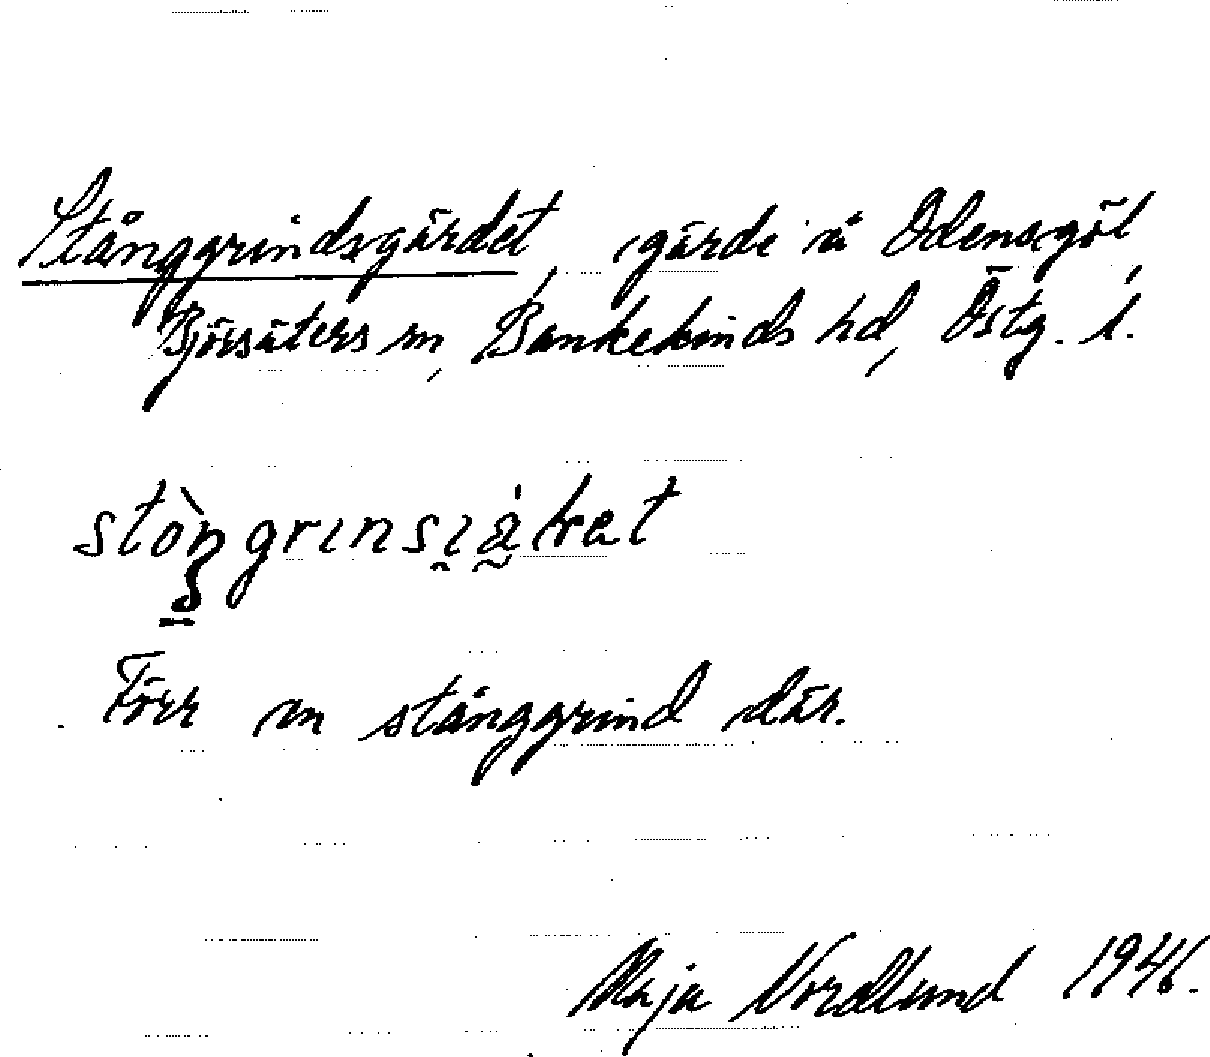 Stånggrindsgärdet, gärde å Odensgöl,
Björsäters sn, Bankekinds hd, Östg. l.
stòŋgrinsjäket
Förr en stånggrind där.
Maja Nordlund 1946.